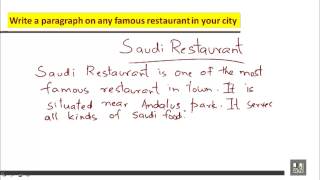 Write a paragraph on any famous restaurant in your city
Saudi Restaurant
Saudi Restaurant is one of the most
famous restaurant in town. It is
situated near Andalus park. It serves
all kinds of Saudi food.